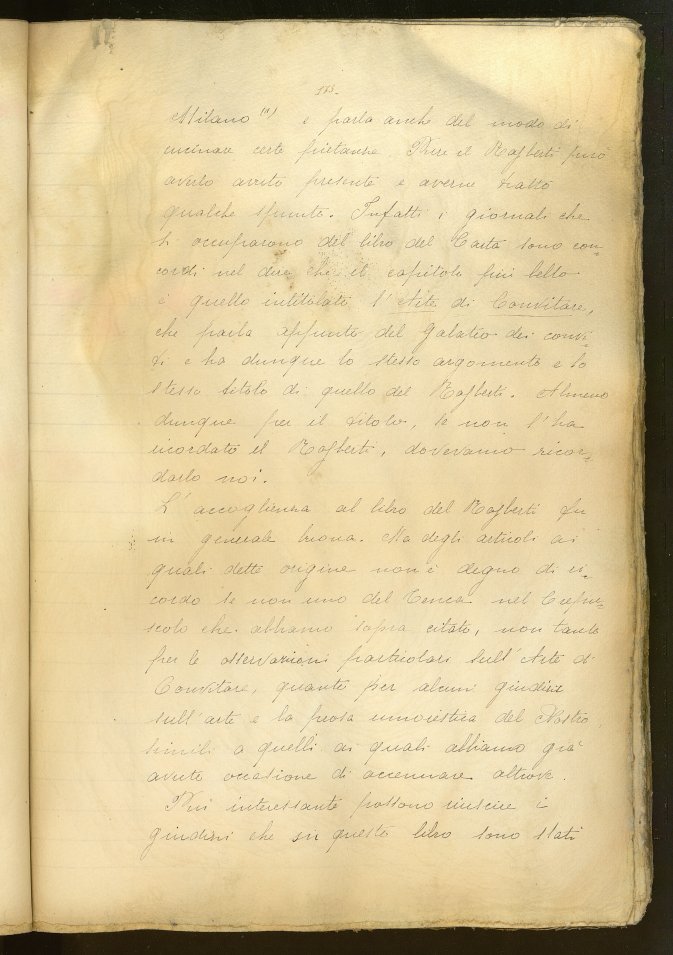 173.
Milano (1) e parla anche del modo di
cucinare certe pietanze. Pure il Raiberti può
averlo avuto presente e averne tratto
qualche spunto. Infatti i giornali che
si occuparono del libro del Cantù sono con-
cordi nel dire che il capitolo più bello
è quello intitolato l'Arte di Convitare,
che parla appunto del Galateo dei convi-
ti e ha dunque lo stesso argomento e lo
stesso titolo di quello del Raiberti. Almeno
dunque per il titolo, se non l'ha
ricordato il Raiberti, dovevamo ricor-
darlo noi.
L'accoglienza al libro del Raiberti fu
in generale buona. Ma degli articoli ai
quali dette origine non è degno di ri-
cordo se non uno del Tenca nel Crepu-
scolo che abbiamo sopra citato, non tanto
per le osservazioni particolari sull'Arte di
Convitare, quanto per alcuni giudizi
sull'arte e la prosa umoristica del Nostro
simili a quelli ai quali abbiamo già
avuto occasione di accennare altrove.
Più interessante possono riuscire i
giudizi che su questo libro sono stati